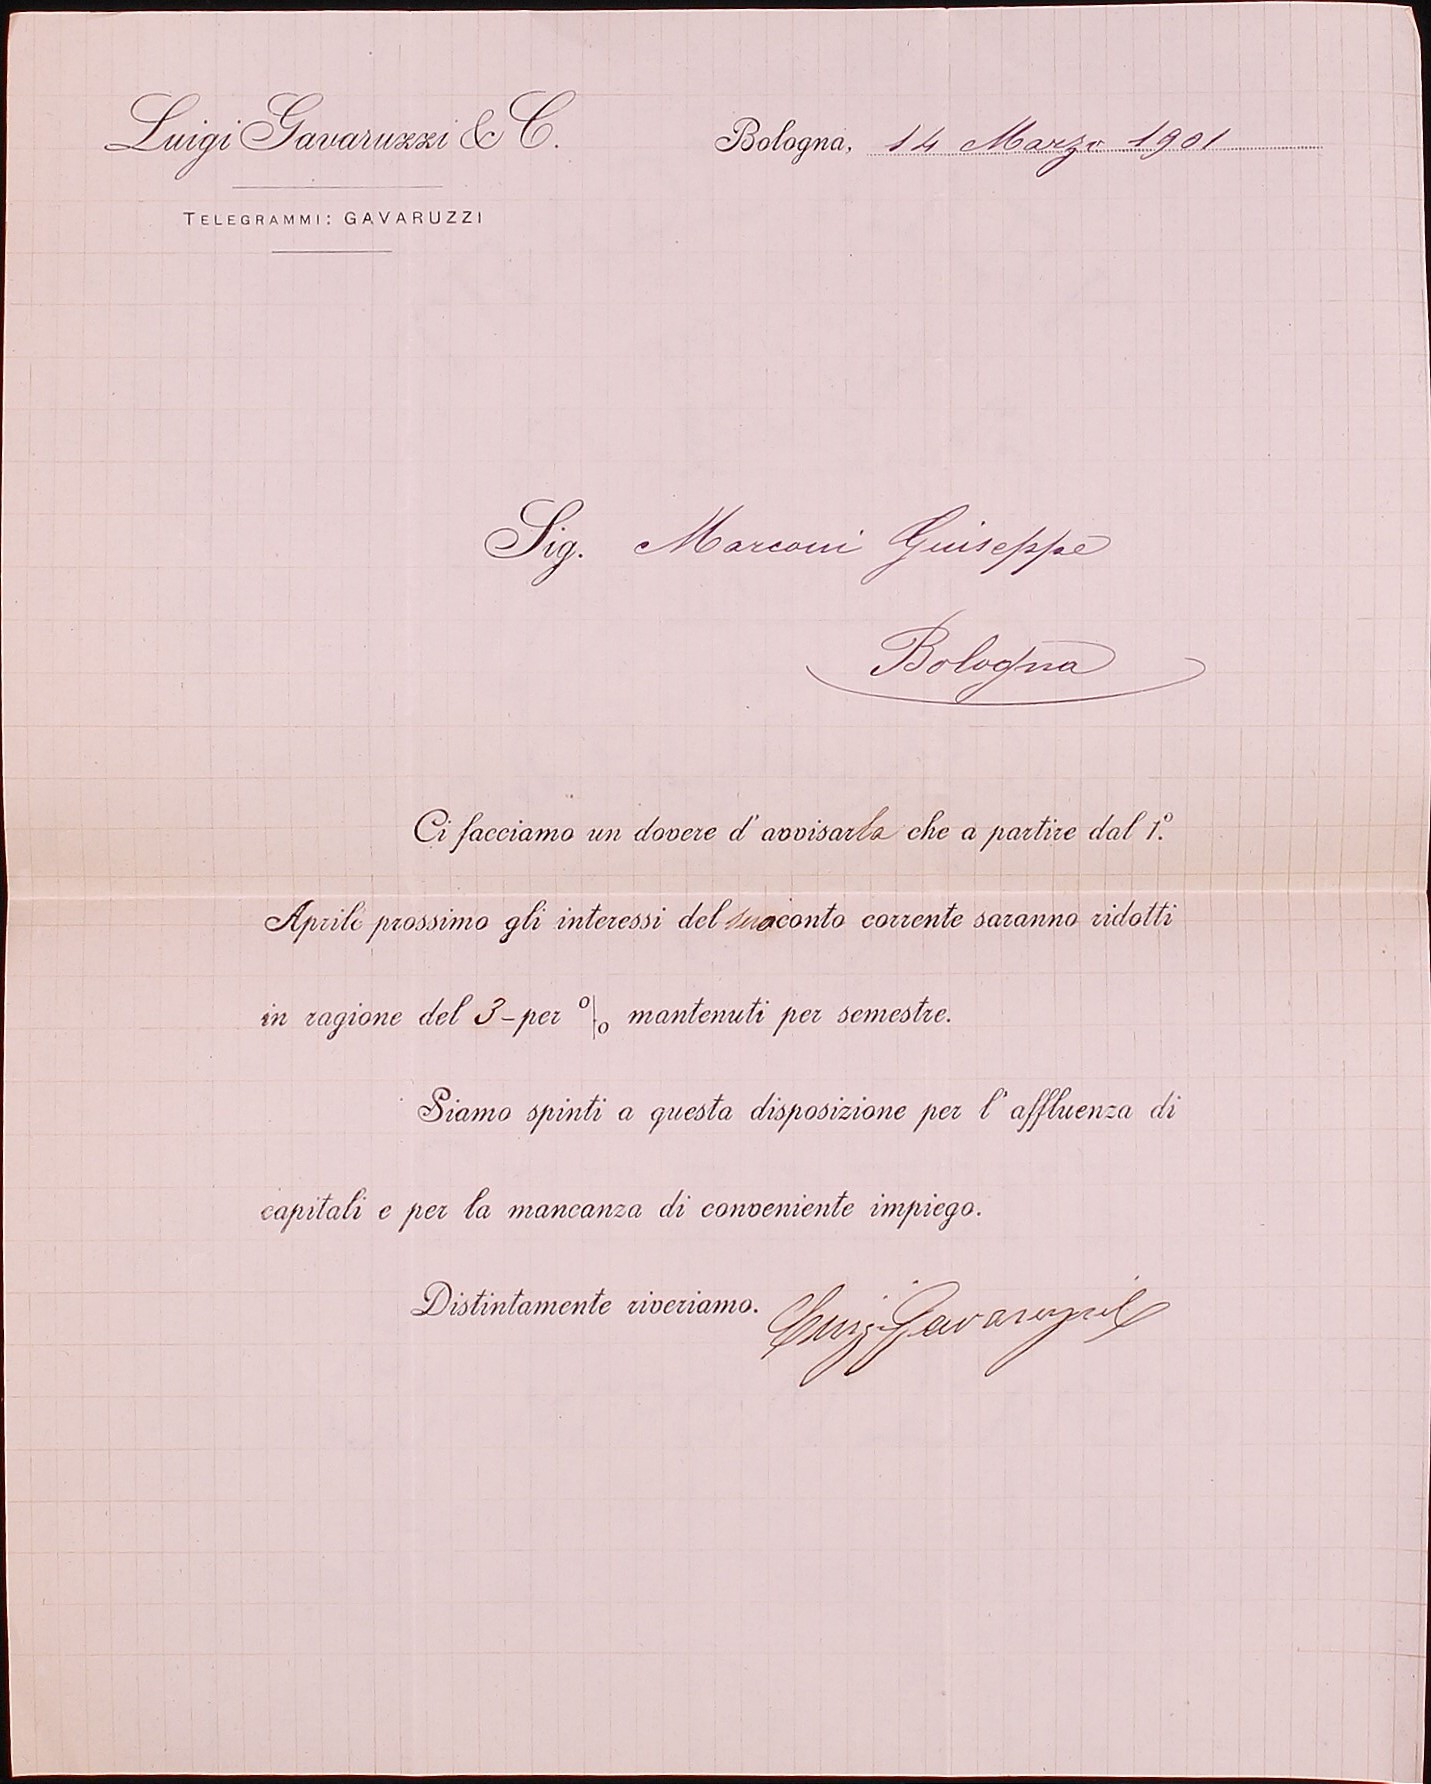 Luigi Gavaruzzi & C.
Bologna, 14 Marzo 1901
TELEGRAMMI: GAVARUZZI
Sig. Marconi Giuseppe
Bologna
Ci facciamo un dovere d'avvisarla che a partire dal 1.º
Aprile prossimo gli interessi del suo conto corrente saranno ridotti
in ragione del 3- per % mantenuti per semestre.
Siamo spinti a questa disposizione per l'affluenza di
capitali e per la mancanza di conveniente impiego.
Distintamente riveriamo.
Luigi Gavaruzzi & C